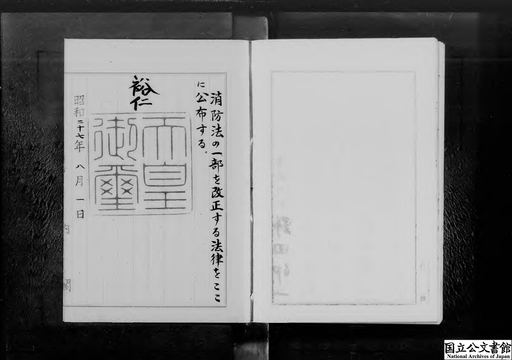 消防法の一部を改正する法律をここ
に公布する。
裕仁
天皇
御璽
昭和二十七年八月一日
内閣
国立公文書館
National Archives of Japan